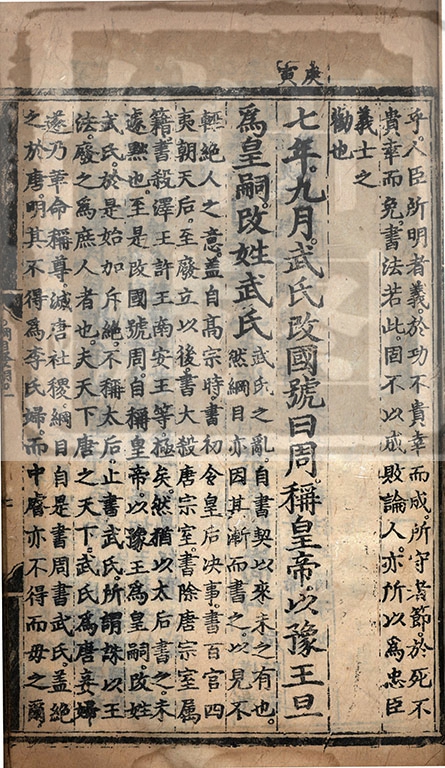 庚寅
乎。人臣所明者義。於功不貴幸而成。所守者節。於死不
貴幸而免。書法若此。固不以成敗論人。亦所以為忠臣
義士之
勸也
七年。九月。武氏改國號曰周。稱皇帝。以豫王旦
為皇嗣。改姓武氏
武氏之亂。自書契以來未之有也。
然綱目亦因其漸而書之。以見不
輕絕人之意。蓋自高宗時。書初令皇后决事。書百官四
夷朝天后。至廢立以後。書大殺唐宗室。書除唐宗室屬
籍。書殺澤王許王南安王等。極矣。然猶以太后書之。未
遽黜也。至是改國號周。自稱皇帝。以豫王為皇嗣。改姓
武氏。於是始加斥絕。不稱太后。止書武氏。所謂誅以王
法。廢之為庶人者也。夫天下唐之天下。武氏為唐妾婦
遂乃革命稱尊。滅唐社稷。綱目自是書周書武氏。蓋絕
之於唐。明其不得為李氏婦。而中睿亦不得而毋之爾